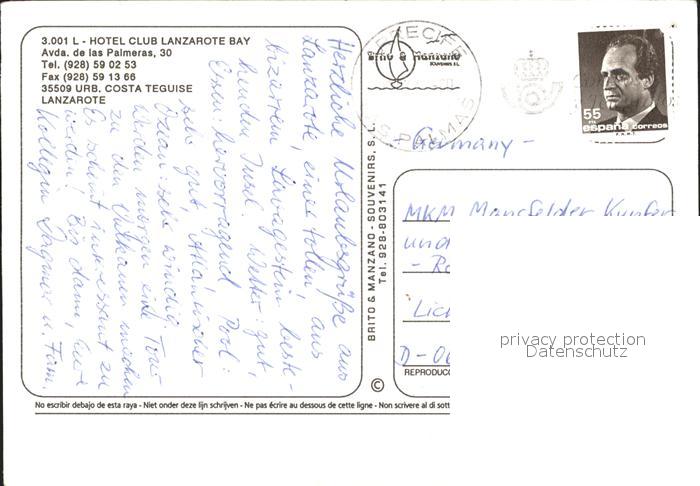 3.001 L - HOTEL CLUB LANZAROTE BAY
Avda. de las Palmeras, 30
Tel. (928) 59 02 53
Fax (928) 59 13 66
35509 URB. COSTA TEGUISE
LANZAROTE
Herzliche Urlaubsgrüße aus
Lanzarote, eine tollen, aus
bizarrem Lavagestein, beste-
henden Insel. Wetter gut,
Essen: hervorragend, Pool:
sehr gut, Atlantischer
Ozean: sehr windig.
Werden morgen eine Tour
zu den Vulkanen machen
Es scheint interessant zu
werden! Bis dann, Eure
Kollegin Dagmar u. Fam.
BRITO & MANZANO - SOUVENIRS, S. L.
Tel. 928-803141
©
Brito & Manzano
SOUVENIRS S.L.
ARRECIFE
LAS PALMAS
55
PTA
españa correos
F.N.M.T.
- Germany -
MKM Mansfelder Kupfer
und
privacy protection
Datenschutz
REPRODUCC
No escribir debajo de esta raya - Niet onder deze lijn schrijven - Ne pas écrire au dessous de cette ligne - Non scrivere al di sott